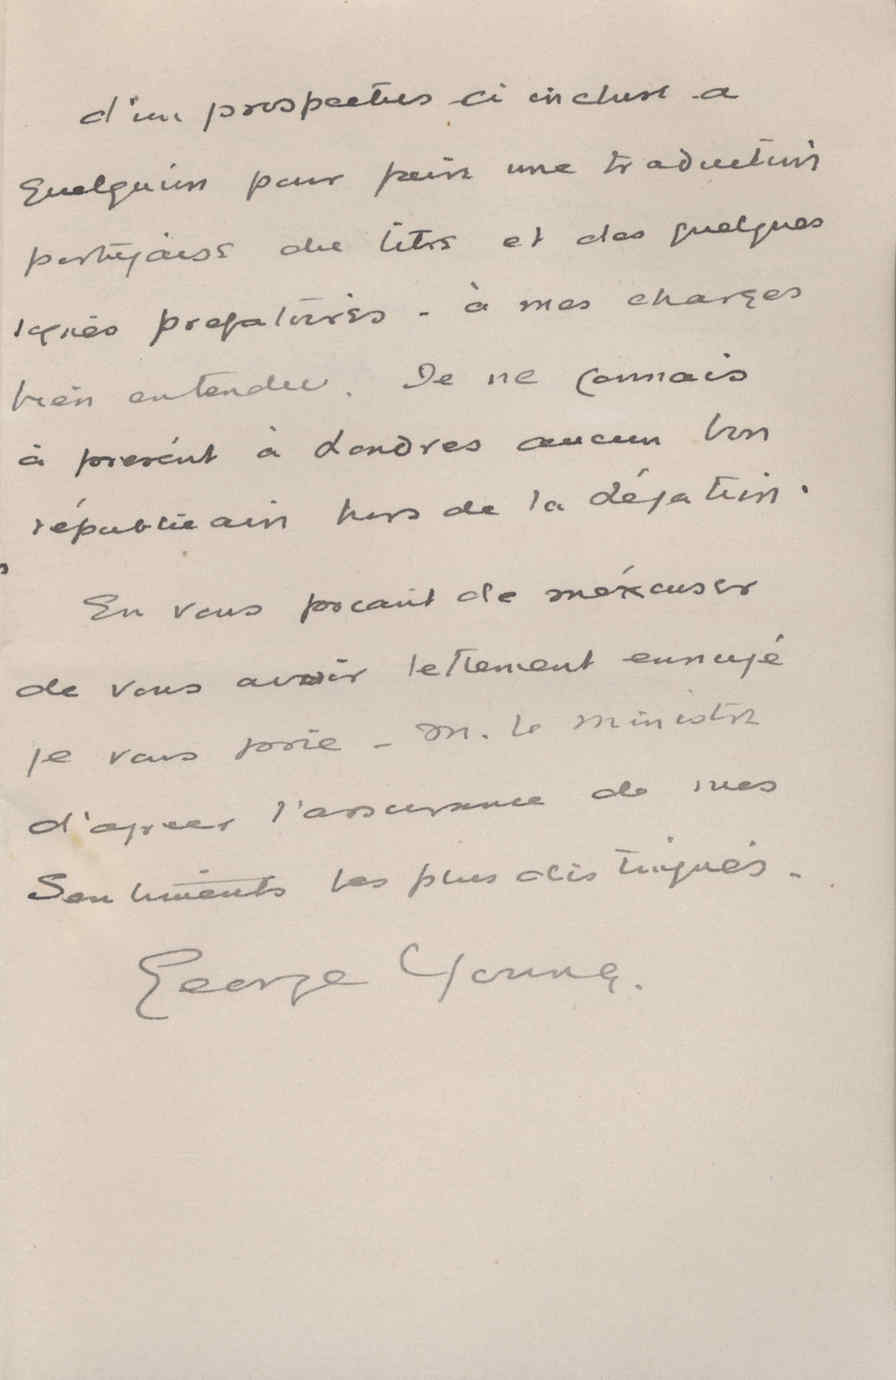 d'un prospectus ci inclus a
quelqu'un pour faire une traduction
portugaise du titre et des quelques
lignes prefatoires - à mes charges
bien entendu. Je ne connais
à present à Londres aucun bon
républicain hors de la Légation.
En vous priant de m'éxcuser
de vous avoir tellement ennuyé
je vous prie - M. le ministre
d'agreer l'assurance de mes
Sentiments les plus distingués -
George Young.